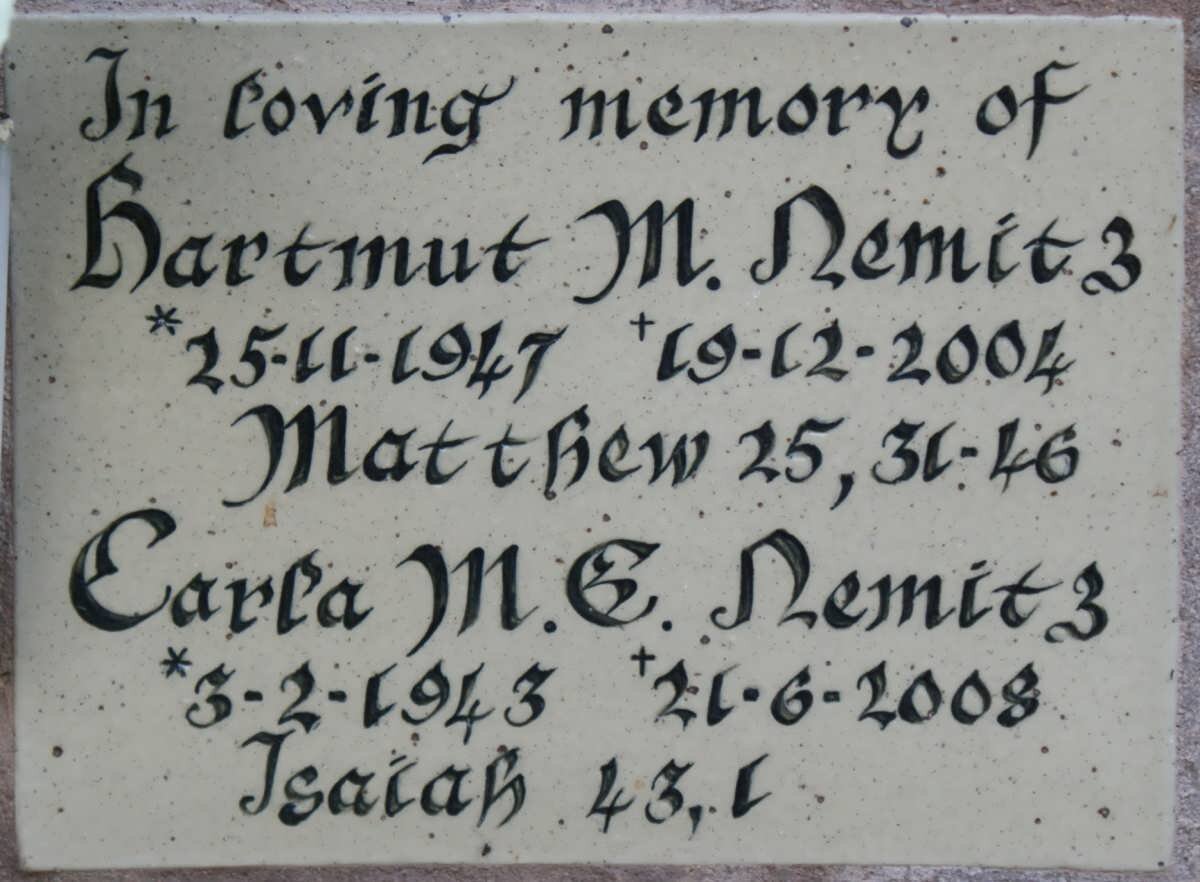 In loving memory of
Hartmut M. Nemitz
*25-11-1947 †19-12-2004
Matthew 25, 31-46
Carla M. E. Nemitz
*3-2-1943 †21-6-2008
Isaiah 43,1